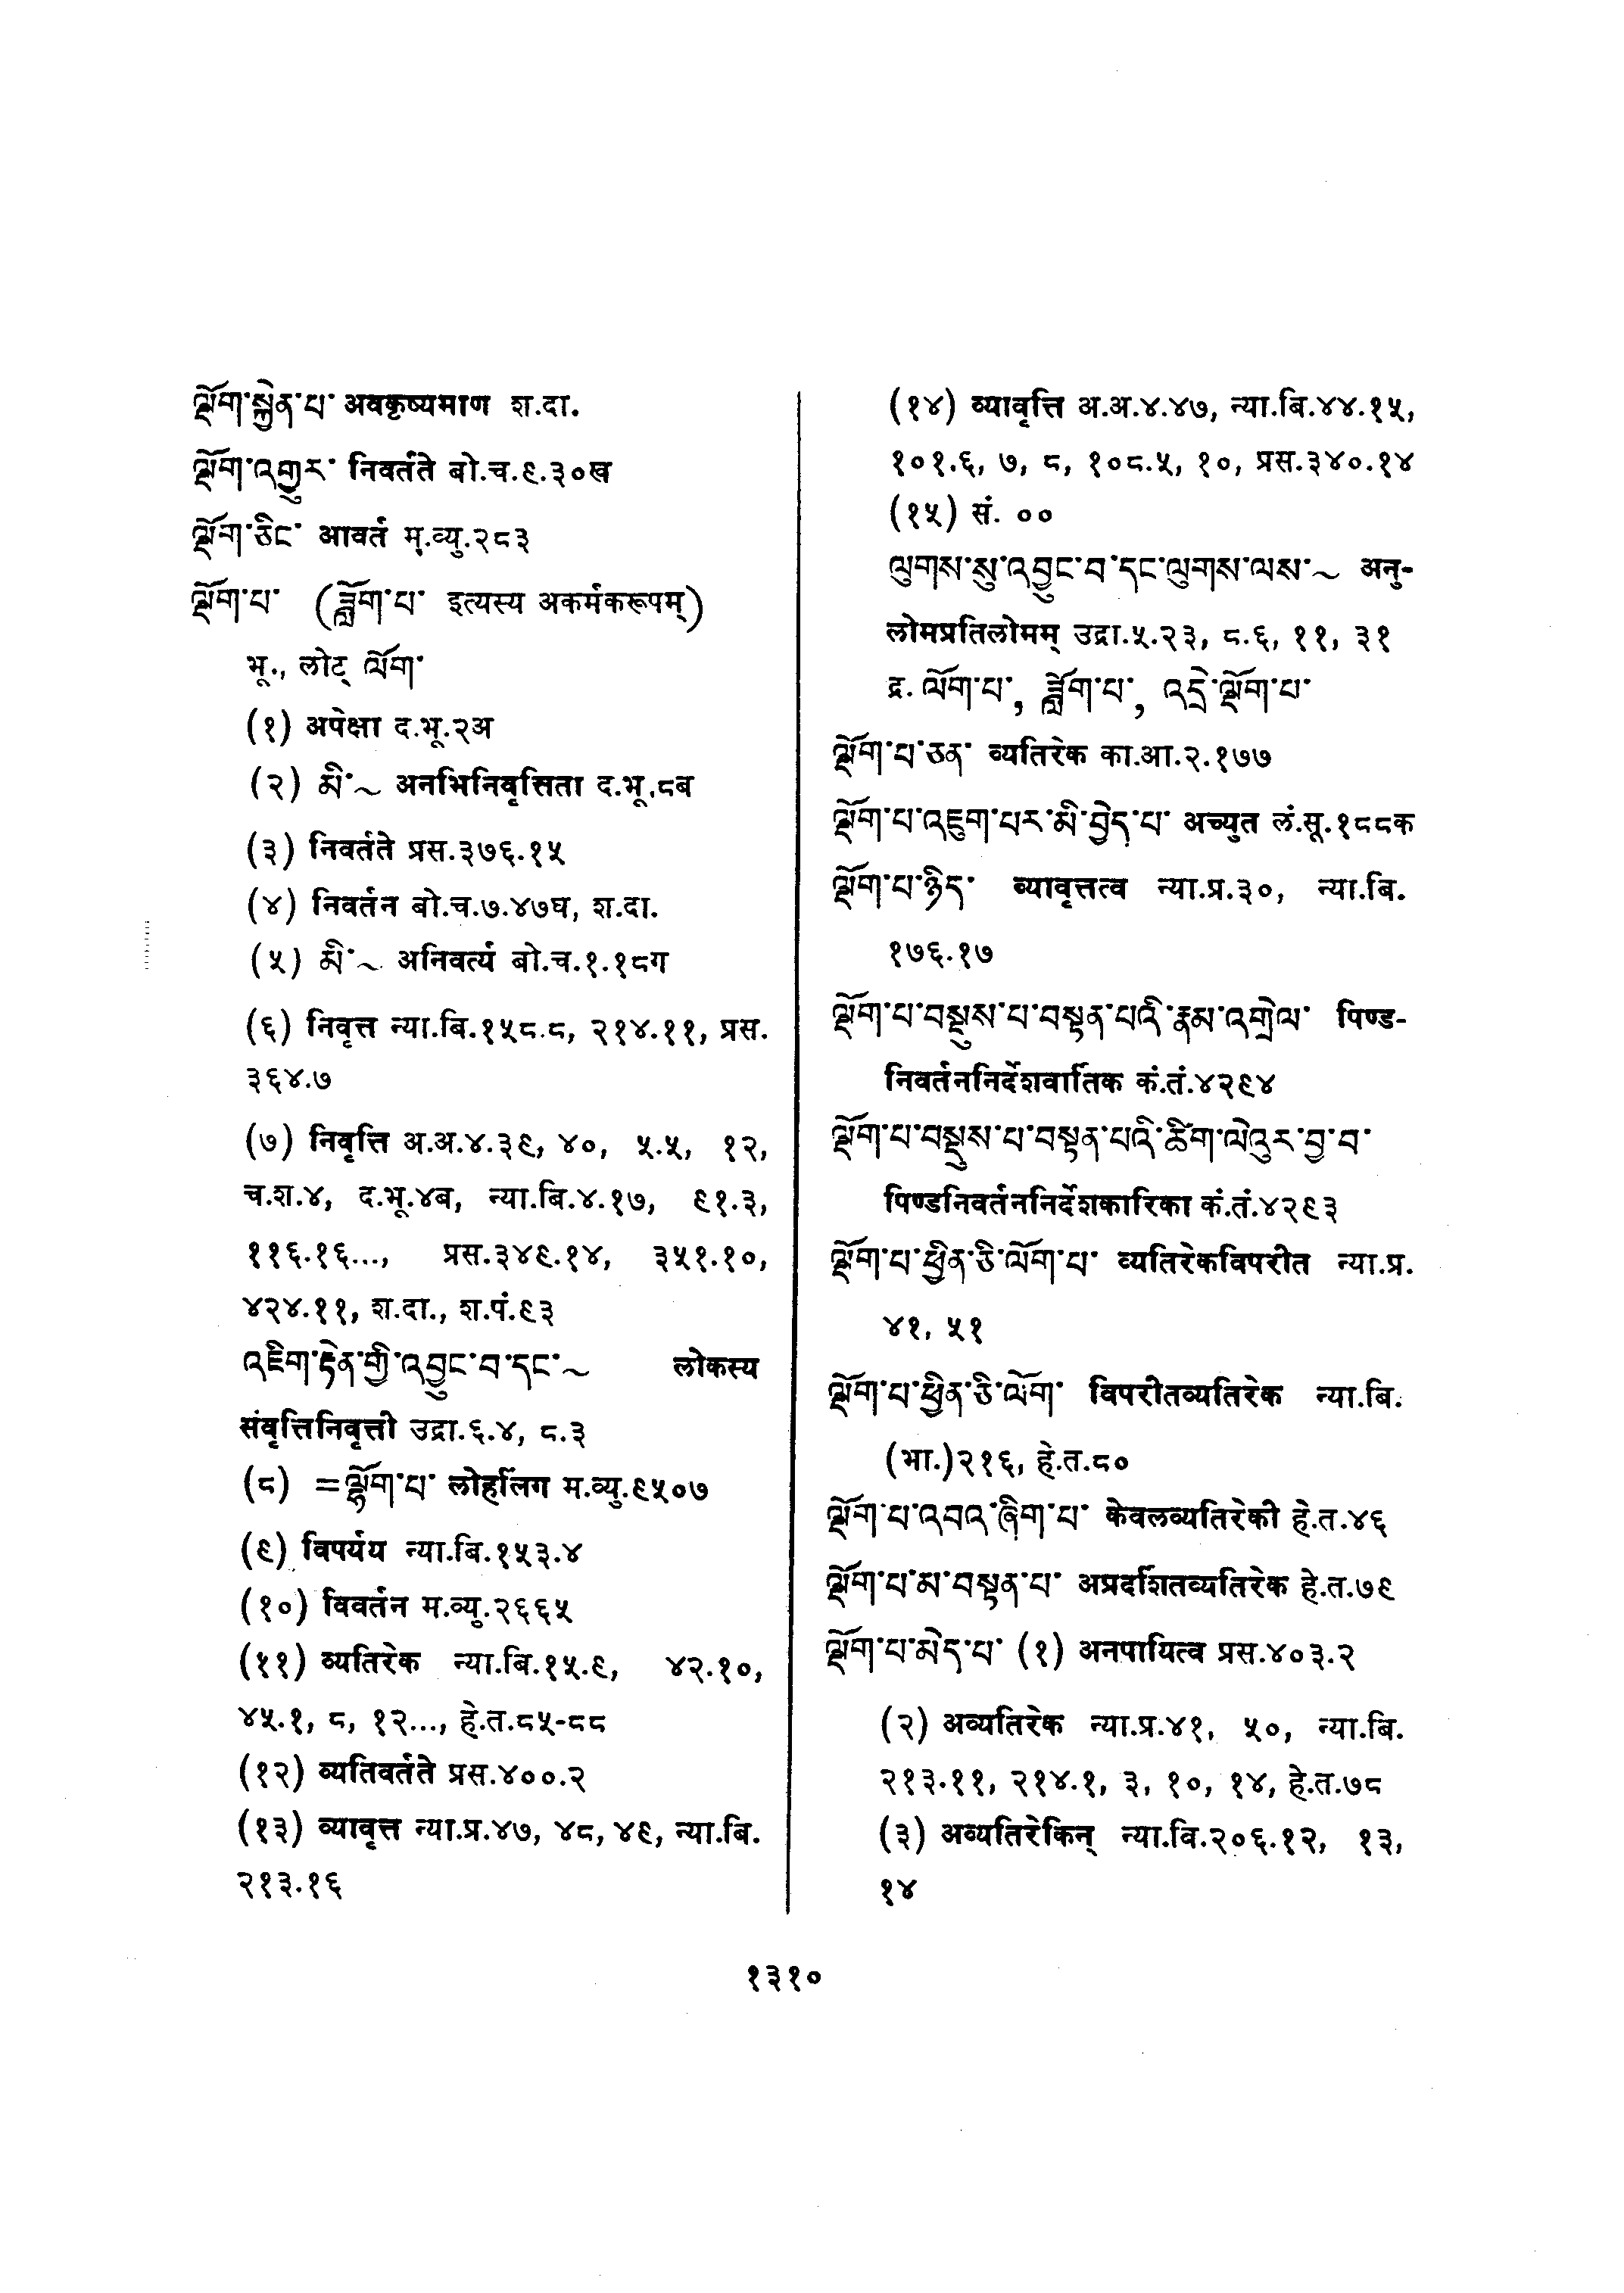 ལྡོག་སྐྱེན་པ་ अवकृष्यमाण श.दा.
ལྡོག་འགྱུར་ निवर्तते बो.च.९.३०ख
ལྡོག་ཅིང་ आवर्त म.व्यु.२८३
ལྡོག་པ་ (ཟློག་པ་ इत्यस्य अकर्मकरूपम्)
भू., लोट् ལོག་
(१) अपेक्षा द.भू.२अ
(२) མི་~ अनभिनिवृत्तिता द.भू.८ब
(३) निवर्तते प्रस.३७६.१५
(४) निवर्तन बो.च.७.४७घ, श.दा.
(५) མི་~ अनिवर्त्य बो.च.१.१८ग
(६) निवृत्त न्या.बि.१५८.८, २१४.११, प्रस.
३६४.७
(७) निवृत्ति अ.अ.४.३९, ४०, ५.५, १२,
च.श.४, द.भू.४ब, न्या.बि.४.१७, ९१.३,
११६.१६..., प्रस.३४९.१४, ३५१.१०,
४२४.११, श.दा., श.पं.९३
འཇིག་རྟེན་གྱི་འབྱུང་བ་དང་~ लोकस्य
संवृत्तिनिवृत्ती उद्रा.६.४, ८.३
(८) =ལྷོག་པ་ लोहलिंग म.व्यु.९५०७
(९) विपर्यय न्या.बि.१५३.४
(१०) विवर्तन म.व्यु.२६६५
(११) व्यतिरेक न्या.बि.१५.९, ४२.१०,
४५.१, ८, १२..., हे.त.८५-८८
(१२) व्यतिवर्तते प्रस.४००.२
(१३) व्यावृत्त न्या.प्र.४७, ४८, ४९, न्या.बि.
२१३.१६
(१४) व्यावृत्ति अ.अ.४.४७, न्या.बि.४४.१५,
१०१.६, ७, ८, १०८.५, १०, प्रस.३४०.१४
(१५) सं. ००
ལུགས་སུ་འབྱུང་བ་དང་ལུགས་ལས་~ अनु-
लोमप्रतिलोमम् उद्रा.५.२३, ८.६, ११, ३१
द्र. ལོག་པ་, ཟློག་པ་, འདྲེ་ལྡོག་པ་
ལྡོག་པ་ཅན་ व्यतिरेक का.आ.२.१७७
ལྡོག་པ་འཇུག་པར་མི་བྱེད་པ་ अच्युत लं.सू.१८८क
ལྡོག་པ་ཉིད་ व्यावृत्तत्व न्या.प्र.३०, न्या.बि.
१७६.१७
ལྡོག་པ་བསྡུས་པ་བསྟན་པའི་རྣམ་འགྲེལ་ पिण्ड-
निवर्तननिर्देशवार्तिक कं.तं.४२९४
ལྡོག་པ་བསྡུས་པ་བསྟན་པའི་ཚིག་ལེའུར་བྱ་བ་
पिण्डनिवर्तननिर्देशकारिका कं.तं.४२९३
ལྡོག་པ་ཕྱིན་ཅི་ལོག་པ་ व्यतिरेकविपरीत न्या.प्र.
४१, ५१
ལྡོག་པ་ཕྱིན་ཅི་ལོག་ विपरीतव्यतिरेक न्या.बि.
(भा.)२१६, हे.त.८०
ལྡོག་པ་འབའ་ཞིག་པ་ केवलव्यतिरेकी हे.त.४६
ལྡོག་པ་མ་བསྟན་པ་ अप्रदर्शितव्यतिरेक हे.त.७९
ལྡོག་པ་མེད་པ་ (१) अनपायित्व प्रस.४०३.२
(२) अव्यतिरेक न्या.प्र.४१, ५०, न्या.बि.
२१३.११, २१४.१, ३, १०, १४, हे.त.७८
(३) अव्यतिरेकिन् न्या.वि.२०६.१२, १३,
१४
१३१०